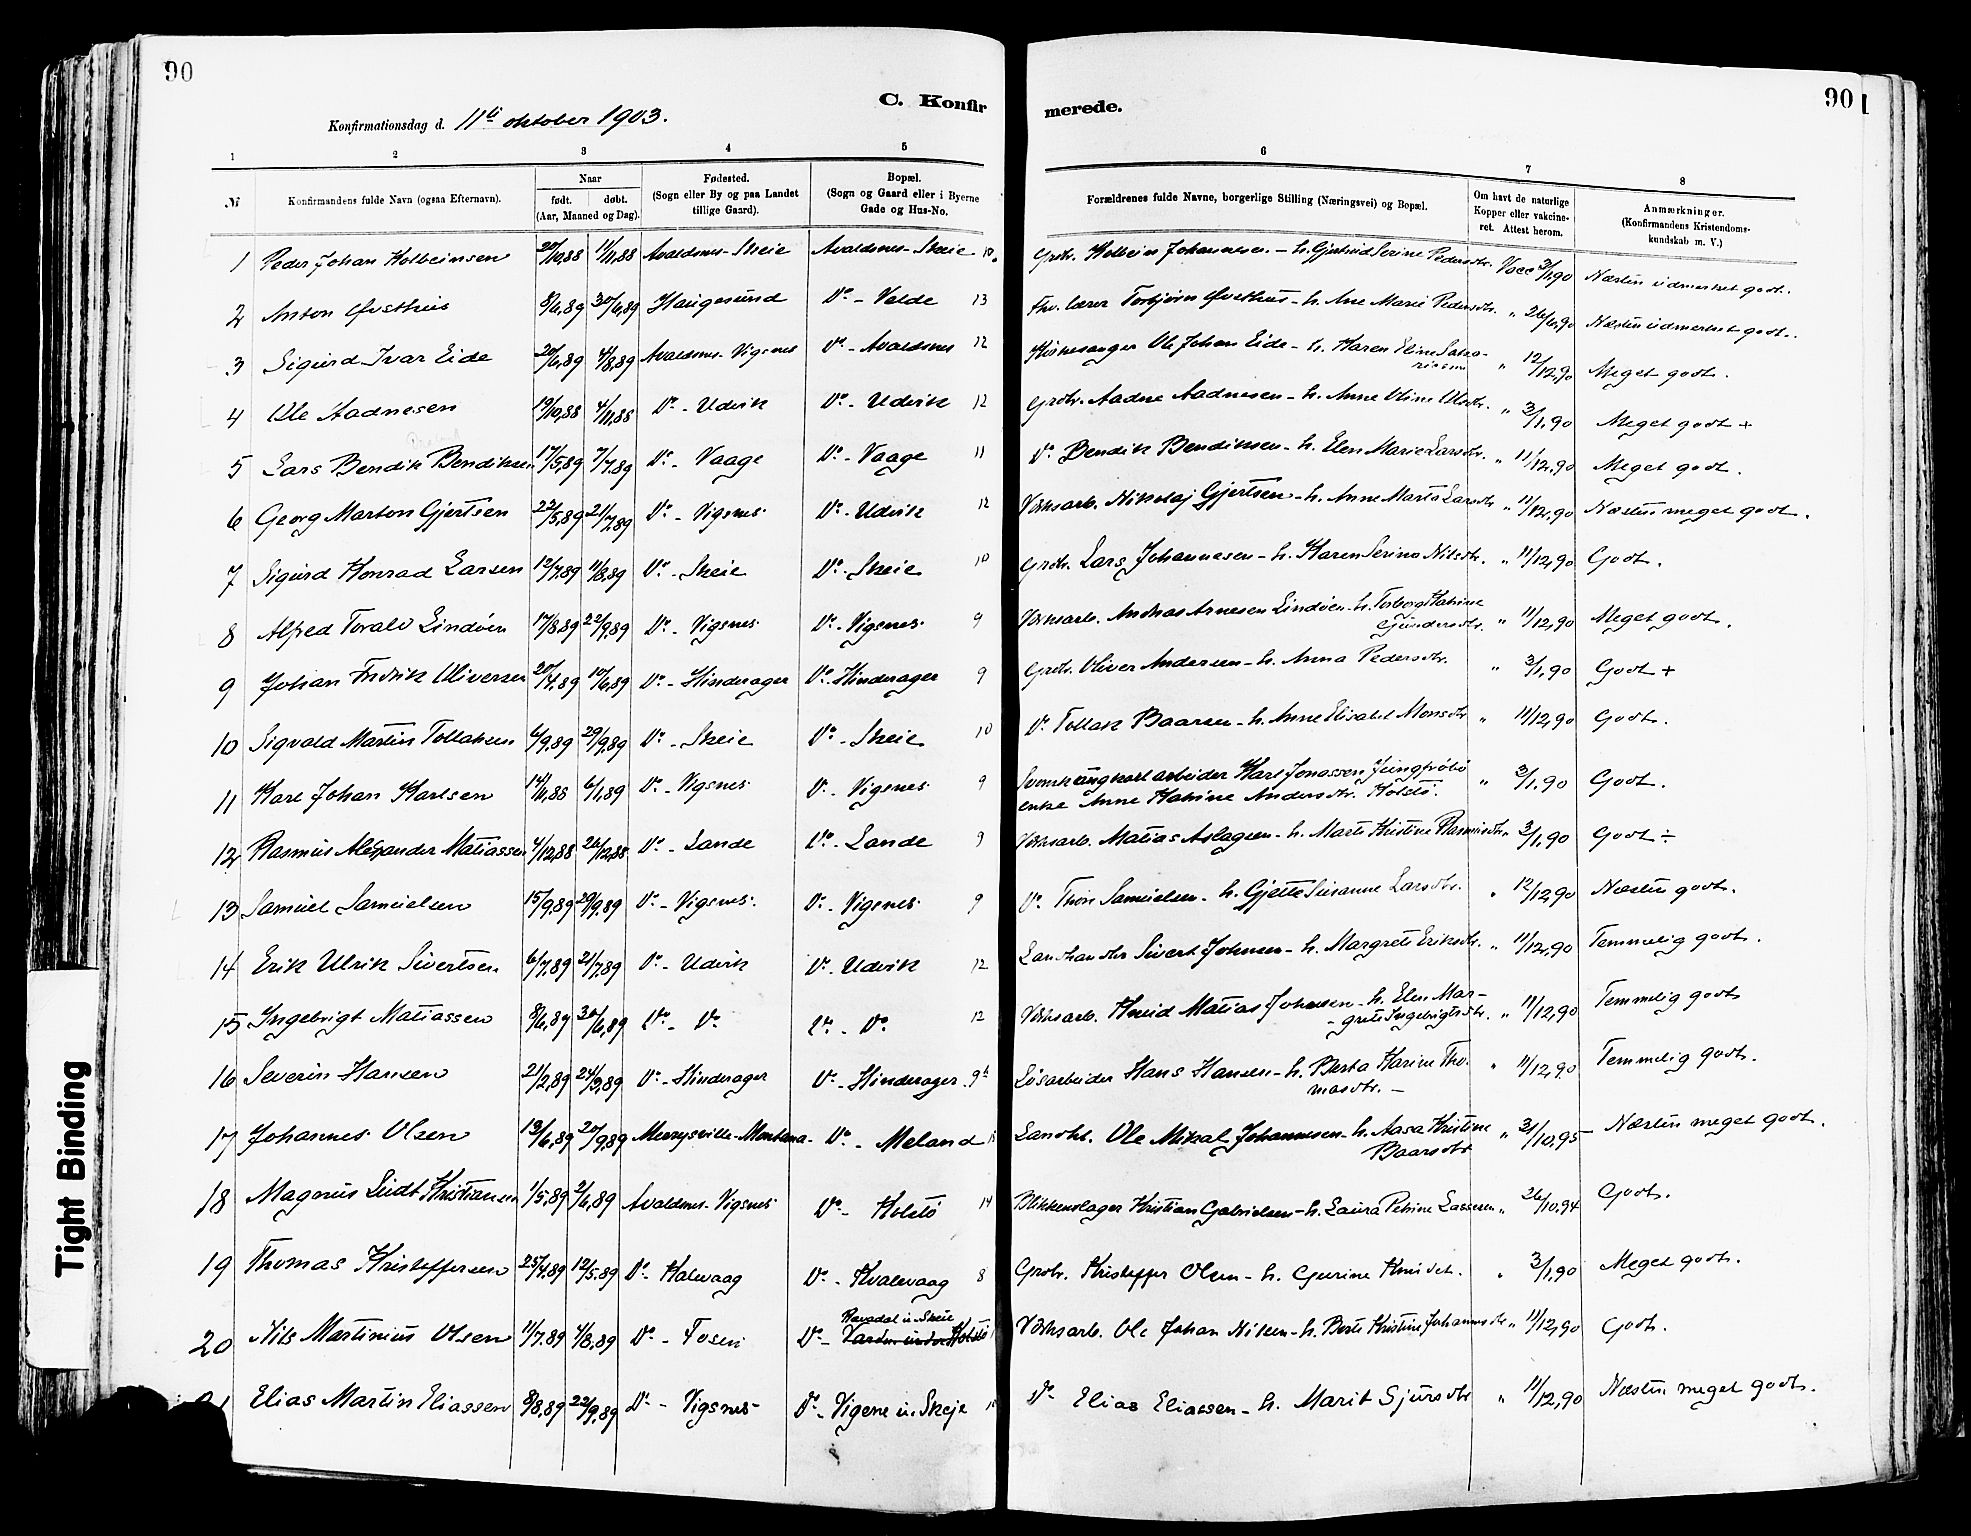 90
C. Konfir
merede.
90
Konfirmationsdag d. 11te oktober 1903.
1 2 3 4 5 6 7 8
№ Konfirmandens fulde Navn (ogsaa Efternavn). Naar født. døbt. (Aar, Maaned og Dag). Fødested. (Sogn eller By og paa Landet tillige Gaard). Bopæl. (Sogn og Gaard eller i Byerne Gade og Hus-No. Forældrenes fulde Navne, borgerlige Stilling (Næringsvei) og Bopæl. Om havt de naturlige Kopper eller vakcineret. Attest herom. Anmærkninger. (Konfirmandens Kristendomskundskab m. V.)
1 Peder Johan Kolbeinsen 20/10,88 11/11,88 Avaldsnes-Skeie Avaldsnes-Skeie 10. Grdbr. Kolbein Johannesen - h. Gjertrud Serine Pedersdtr. Vacc 3/1,90 Næsten udmerket godt.
2 Anton Øvsthus 8/6,89 30/6,89 Haugesund Do - Velde 13 Fhv. lærer Torbjørn Øvsthus - h. Ane Marie Pedersdtr. " 26/6,90 Næsten udmerket godt.
3 Sigurd Ivar Eide 20/6,89 4/8,89 Avaldsnes-Vigsnes Do - Avaldsnes 12 Kirkesanger Ole Johan Eide - h. Karen Eline " 12/12,90 Meget godt.
4 Ole Aadnesen 19/10,88 4/11,88 Do - Udvik Do - Udvik 12 Grdbr. Aadne Aadnesen - h. Anne Oline Olsdtr. " 3/1,90 Meget godt +
5 Lars Bendik Bendiksen 17/5,89 7/7,89 Do - Vaage Do - Vaage 11 Do Bendik Bendiksen - h. Elen Marie Larsdtr. " 11/12,90 Meget godt.
6 Georg Marton Gjertsen 22/5,89 21/7,89 Do - Vigsnes Do - Udvik 12 Verksarb. Nikolaj Gjertsen - h. Anne Marta Larsdtr " 11/12,90 Næsten meget godt.
7 Sigurd Konrad Larsen 12/7,89 11/8,89 Do - Skeie Do - Skeie 10 Grdbr. Lars Johannesen - h. Karen Serina Nilsdtr. " 11/12,90 Godt.
8 Alfred Toralv Lindøen 17/8,89 22/9,89 Do - Vigsnes Do - Vigsnes 9 Verksarb. Andreas Arnesen Lindøen - h. Torborg Katrine
Gundersdtr. " 11/12,90 Meget godt.
9 Johan Fredrik Oliversen 20/4,89 10/6,89 Do - Hinderager Do - Hinderager 9 Grdbr. Oliver Andersen - h. Anna Pedersdtr. " 3/1,90 Godt +
10 Sigvald Martin Tollaksen 6/9,89 29/9,89 Do - Skeie Do - Skeie 10 Do Tollak Baarsen - h. Anne Elisabet Monsdtr " 11/12,90 Godt.
11 Karl Johan Karlsen 14/11,88 6/1,89 Do - Vigsnes Do - Vigsnes 9 Svensk arbeider Karl Jonassen
enke Anne Katrine Andersdtr. Kolstø. " 3/1,90 Godt.
12 Rasmus Alexander Matiassen 4/12,88 26/12,88 Do - Lande Do - Lande 9 Verksarb. Matias Aslagsen - h. Marte Kristine Rasmusdtr " 3/1,90 Godt ÷
13 Samuel Samuelsen 15/9,89 29/9,89 Do - Vigsnes Do - Vigsnes 9 Do Thore Samuelsen - h. Gjette Susanne Larsdtr. " 12/12,90 Næsten godt.
14 Erik Ulrik Sivertsen 6/7,89 21/7,89 Do - Udvik Do - Udvik 12 Landhandler Sivert Johnsen - h. Margrete Eriksdtr. " 11/12,90 Temmelig godt.
15 Ingebrigt Matiassen 8/6,89 30/6,89 Do - Do Do - Do 12 Verksarb. Knud Matias Johnsen - h. Elen Mar-
grete Ingebrigtsdtr. " 11/12,90 Temmelig godt
16 Severin Hansen 21/2,89 24/3,89 Do - Hinderager Do - Hinderager 9 Løsarbeider Hans Hansen - h. Berta Karine Tho-
masdtr. - " 11/12,90 Temmelig godt.
17 Johannes Olsen 13/6,89 20/9,89 Merrysville-Montana - Do - Meland Landhl. Ole Mikal Johannesen - h. Aasa Kristine
Baarsdtr " 31/10,95 Næsten meget godt.
18 Magnus Lindt Kristiansen 1/5,89 2/6,89 Avaldsnes-Vigsnes Do - Kolstø 14 Blikkenslager Kristian Gabrielsen - h. Laura Petrine Lassesen " 26/10,94 Godt.
19 Thomas Kristoffersen 25/4,89 12/5,89 Do - Kalevaag Do - Kvalevaag 8 Grdbr. Kristoffer Olsen - h. Gurine Knudsdt. " 3/1,90 Meget godt.
Ravndal u. Skeie
20 Nils Martinius Olsen 11/7,89 4/8,89 Do - Fosen Do - Verksarb. Ole Johan Nilsen - h. Berte Kristine Johannesdtr " 11/12,90 Godt.
Elias Martin Eliassen 8/8,89 22/9,89 Do - Vigsnes Do - Vigene u. Skeje 10 Do Elias Eliassen - h. Marit Sjursdtr " 11/12,90 Næsten meget godt.
Tight Binding